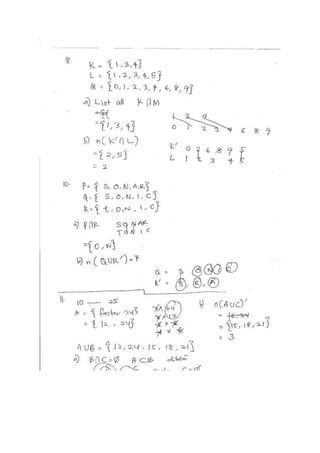 8.
K = {1,3,4}
L = {1,2,3,4,5}
M = {0,1,2,3,4,6,8,9}
a) List all K∩M
={1,3,4}
1 3 4
0 1 2 3 4 6 8 9
b) n(K'∩L)
={2,5}
= 2
K' 0 2 6 8 9 5
L 1 2 3 4 5
10. P={S,O,N,A,R}
Q={S,O,N,I,C}
R={t,O,N,I,C}
a) P∩R
SONAR
TONIC
={O,N}
b) n(QUR')=7
Q = S O N I C
R' = S, R, A
11. 10 — 25
A = {factor 24}
= {12, 24}
AUB = {12,24,15,18,21}
a) B∩C=Ø ACB
b) n(AUC)'
= {15,18,21}
= 3